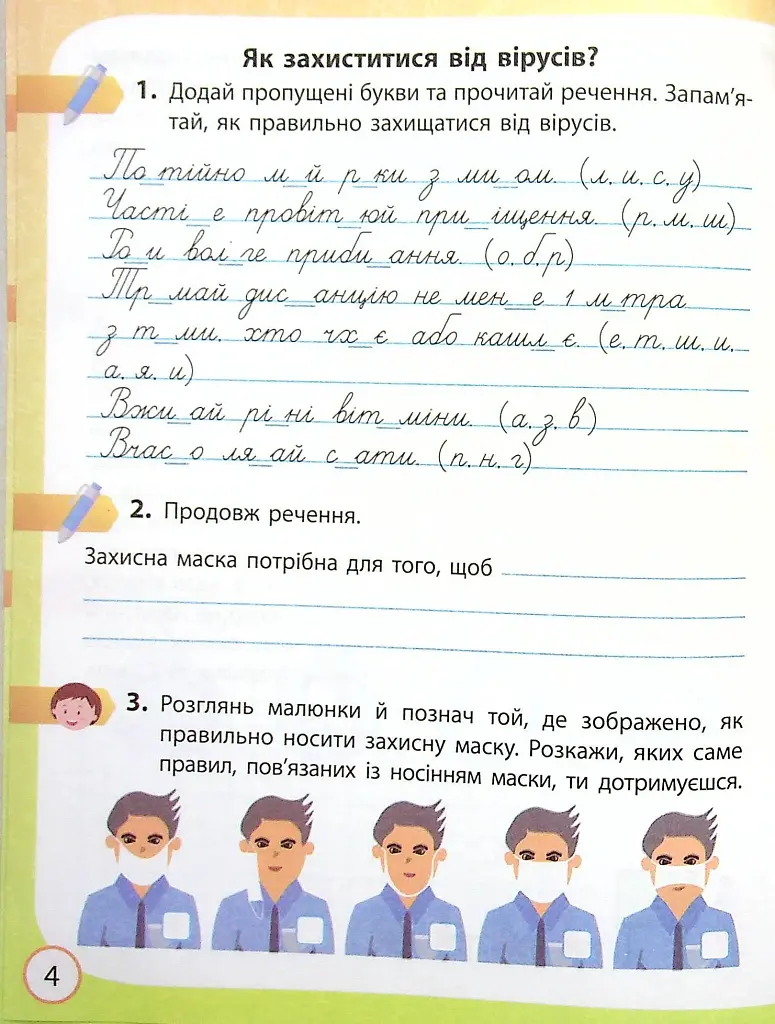 Як захиститися від вірусів?
1. Додай пропущені букви та прочитай речення. Запам'я-
тай, як правильно захищатися від вірусів.
По_тійно м_й р_ки з ми_ом. (л. и. с. у)
Часті_е провіт_юй при_іщення. (р. м. ш)
Ро_и вол_ге приби_ання. (о. б. р)
Тр_май дис_анцію не мен_е 1 м_тра
з т_ми. хто чх_є або кашл_є. (е. т. ш. и.
а. я. и)
Вжи_ай рі_ні віт_міни. (а. з. в)
Вчас_о ля_ай с_ати. (п. н. г)
2. Продовж речення.
Захисна маска потрібна для того, щоб
3. Розглянь малюнки й познач той, де зображено, як
правильно носити захисну маску. Розкажи, яких саме
правил, пов'язаних із носінням маски, ти дотримуєшся.
4